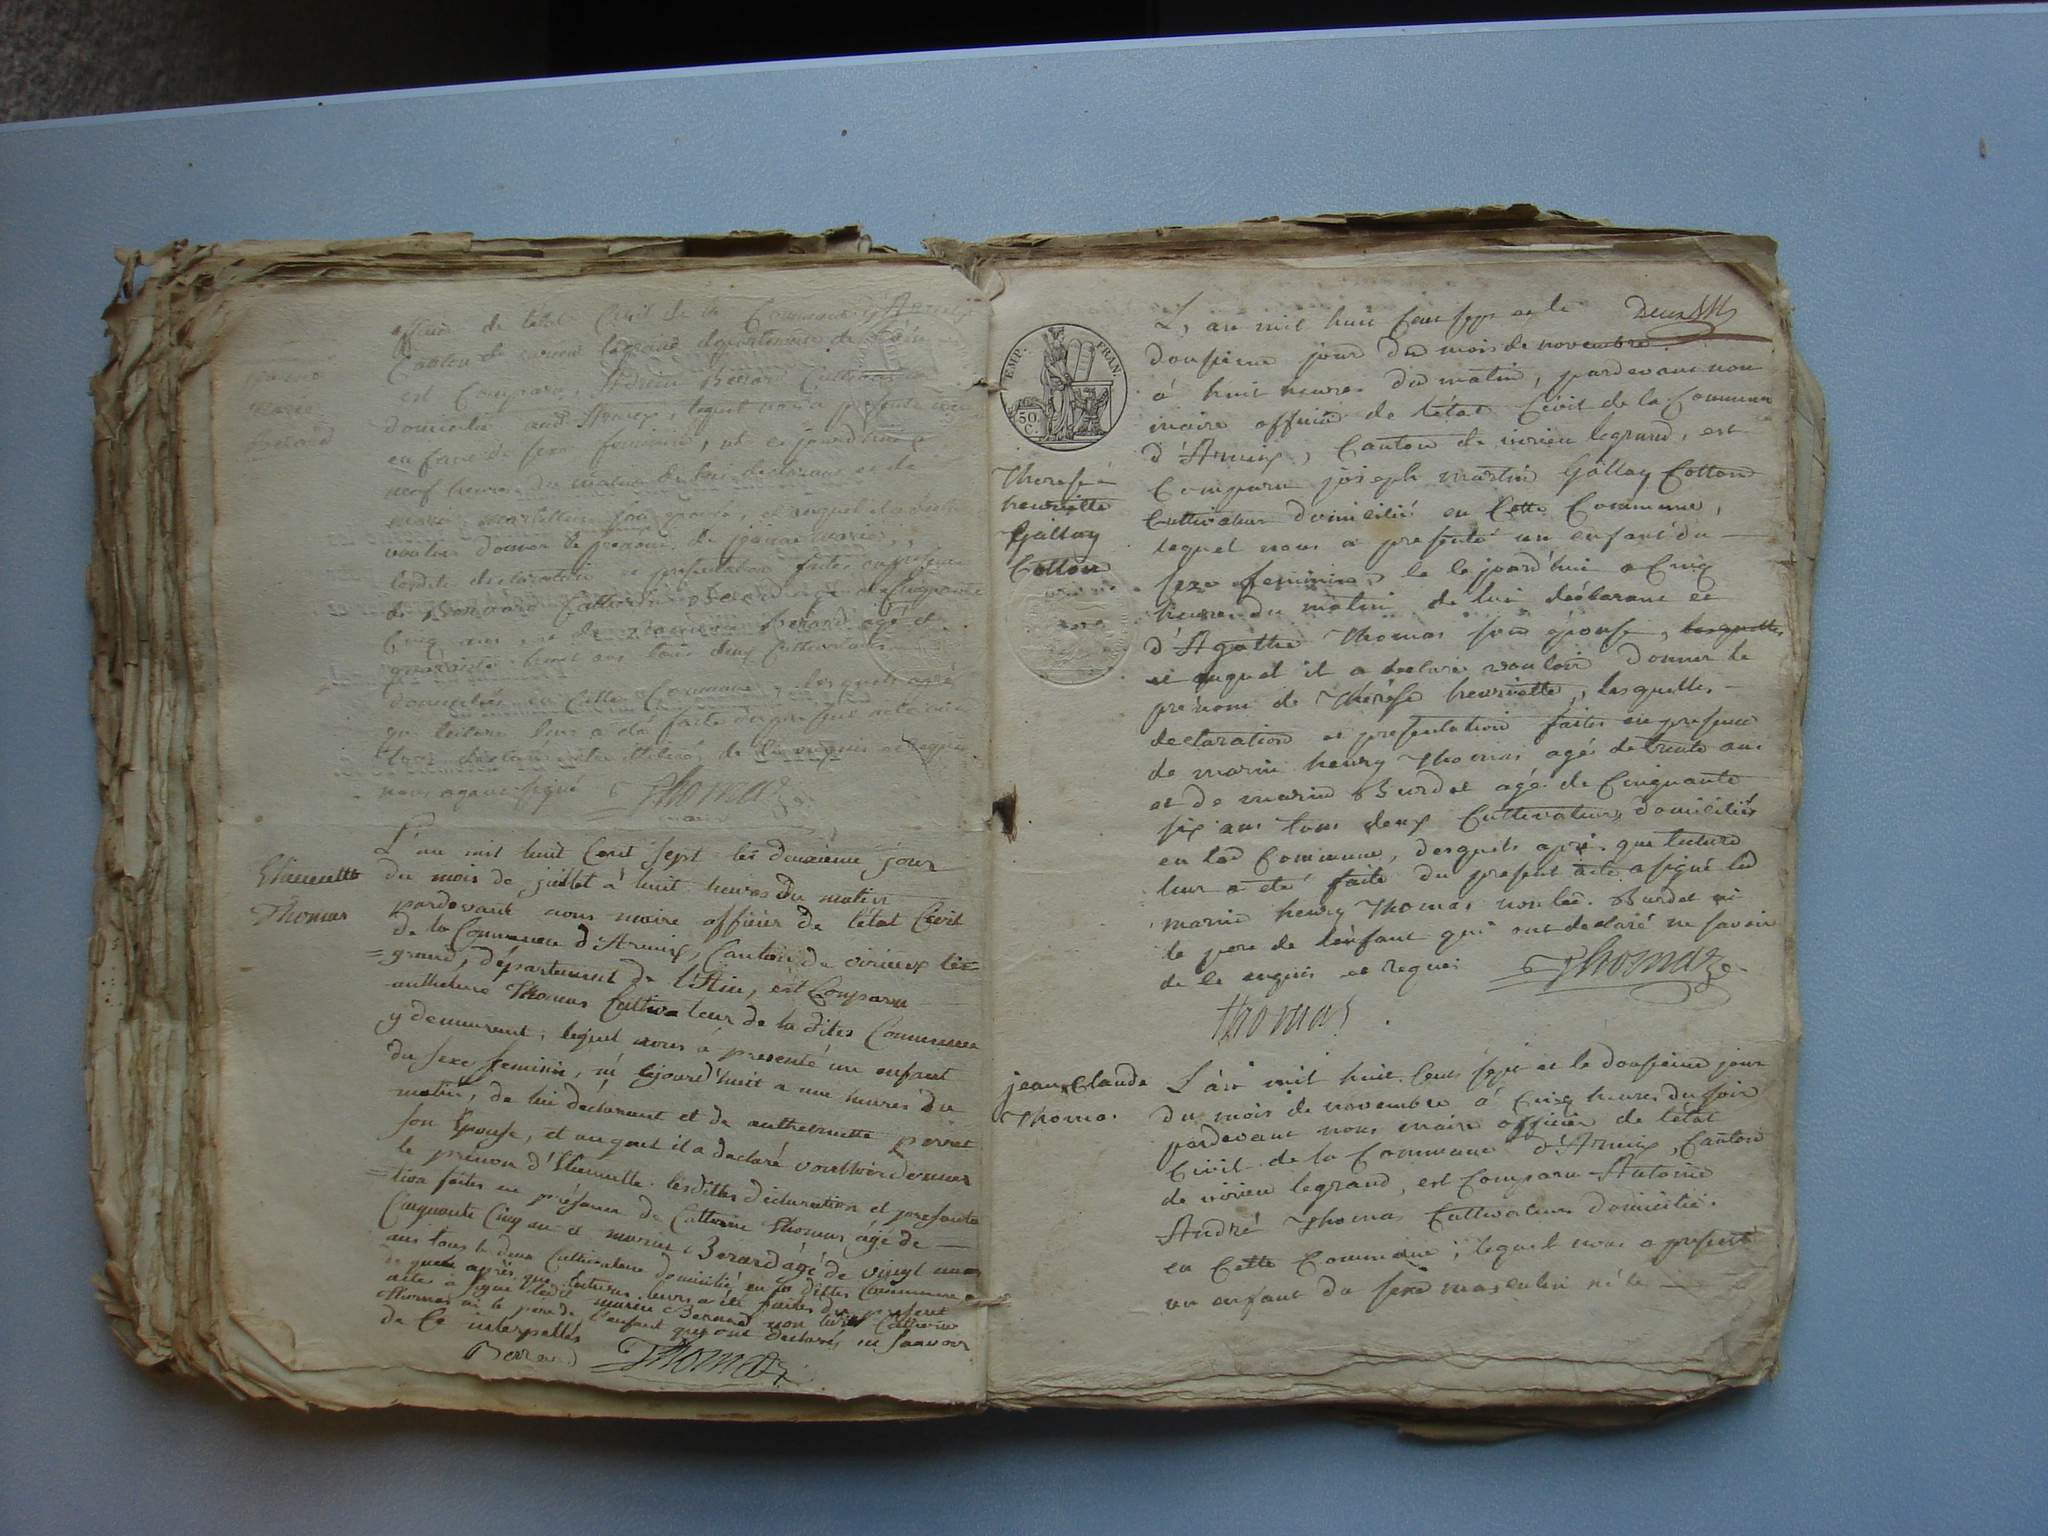 officier de l'état Civil de la Commune d'Armix
Canton de virieu legrand departement de l'ain
est Comparu, Adrien Berrard Cultivateur
domicilié aud. Armix, lequel nous a presenté un
enfant du sexe feminin, né ce jourd'hui a
neuf heures du matin de lui declarant et de
son epouse, et auquel il a declaré
vouloir donner le prenom de jeanne marie,
Lesdite declaration et presentation faites en presence
de Berrard agé de Cinquante
Cinq ans, et de Berard agé de
quarante huit ans tous deux Cultivateurs
domiciliés en Cette Commune, lesquels après
que lecture leur a été faite du present acte
de ce enquis et requis
nous avons signé Thomas
maire
marie
Berard
Etiennette
Thomas
L'an mil huit Cent sept les deuxieme jour
du mois de juillet à huit heures du matin
pardevant nous maire officier de l'état Civil
de la Commune d'Armix, Canton de virieux le=
=grand, département de l'Ain, est Comparu
anthelme Thomas Cultivateur de la dites Commune
y demeurant, lequel nous a presenté un enfant
du sexe feminin, né cejourd'huit a une heures du
matin, de lui déclarant et de anthelmette perret
son Epouse, et auquel il a declaré vouloir donner
le prénom d'Etiennette. lesdittes déclaration et presenta
=tion faites en présence de Catherin Thomas âgé de
Cinquante Cinq ans et marin Berard âgé de vingt
ans tous le deux Cultivateurs domicilié en la dittes Commune,
quels après que lecture leurs a été faites du present
actes à signé ledit marin Berard non ledit Catherin
thomas ni le pere de l'enfant qui ont declarés ne savoir
de Ce interpellés
Berrard Thomas
Deux
EMP. FRAN.
50 C.
L'an mil huit Cent sept et le
douzieme jour du mois de novembre
à huit heures du matin, pardevant nous
maire officier de l'état Civil de la Commune
d'Armix, Canton de virieu legrand, est
Comparu joseph martin Gallay Cotton
Cultivateur domicilié en Cette Commune,
lequel nous a presenté un enfant du
sexe feminin, le jourd'hui a Cinq
heures du matin de lui déclarant et
d'Agathe Thomas son épouse, lesquelles
et auquel il a declaré vouloir donner le
prénom de Thérèse henriette, lesquelles
declaration et presentation faites en presence
de marin henry Thomas agé de trente ans
et de marin Burdet agé de Cinquante
six ans tous deux Cultivateurs domiciliés
en lad Commune, desquels après que lecture
leur a été faite du present acte a signé led
marin henry Thomas non led. Burdet ni
le pere de l'enfant qui ont declaré ne savoir
de le enquis et requis Thomas
Thomas
Therese
henriette
Gallay
Cotton
jean Claude
Thomas
L'an mil huit Cent sept et le douzieme jour
du mois de novembre à Cinq heures du soir
pardevant nous maire officier de l'état
Civil de la Commune d'Armix, Canton
de virieu legrand, est Comparu Antoine
André Thomas Cultivateur domicilié
en Cette Commune, lequel nous a presenté
un enfant du sexe masculin né le